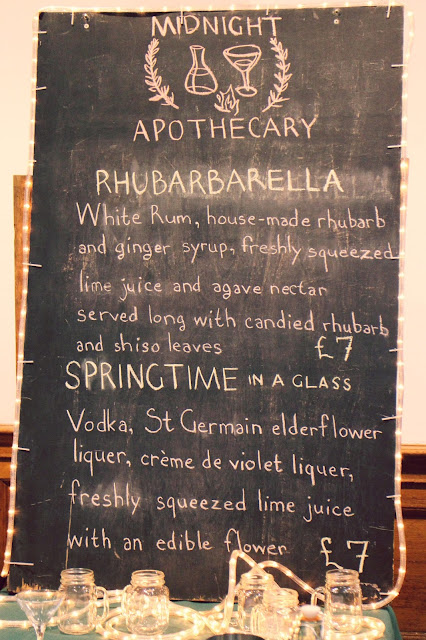 MIDNIGHT
APOTHECARY
RHUBARBARELLA
White Rum, house-made rhubarb
and ginger syrup, freshly squeezed
lime juice and agave nectar
served long with candied rhubarb
and shiso leaves £7
SPRINGTIME IN A GLASS
Vodka, St Germain elderflower
liquer, crème de violet liquer,
freshly squeezed lime juice
with an edible flower £7